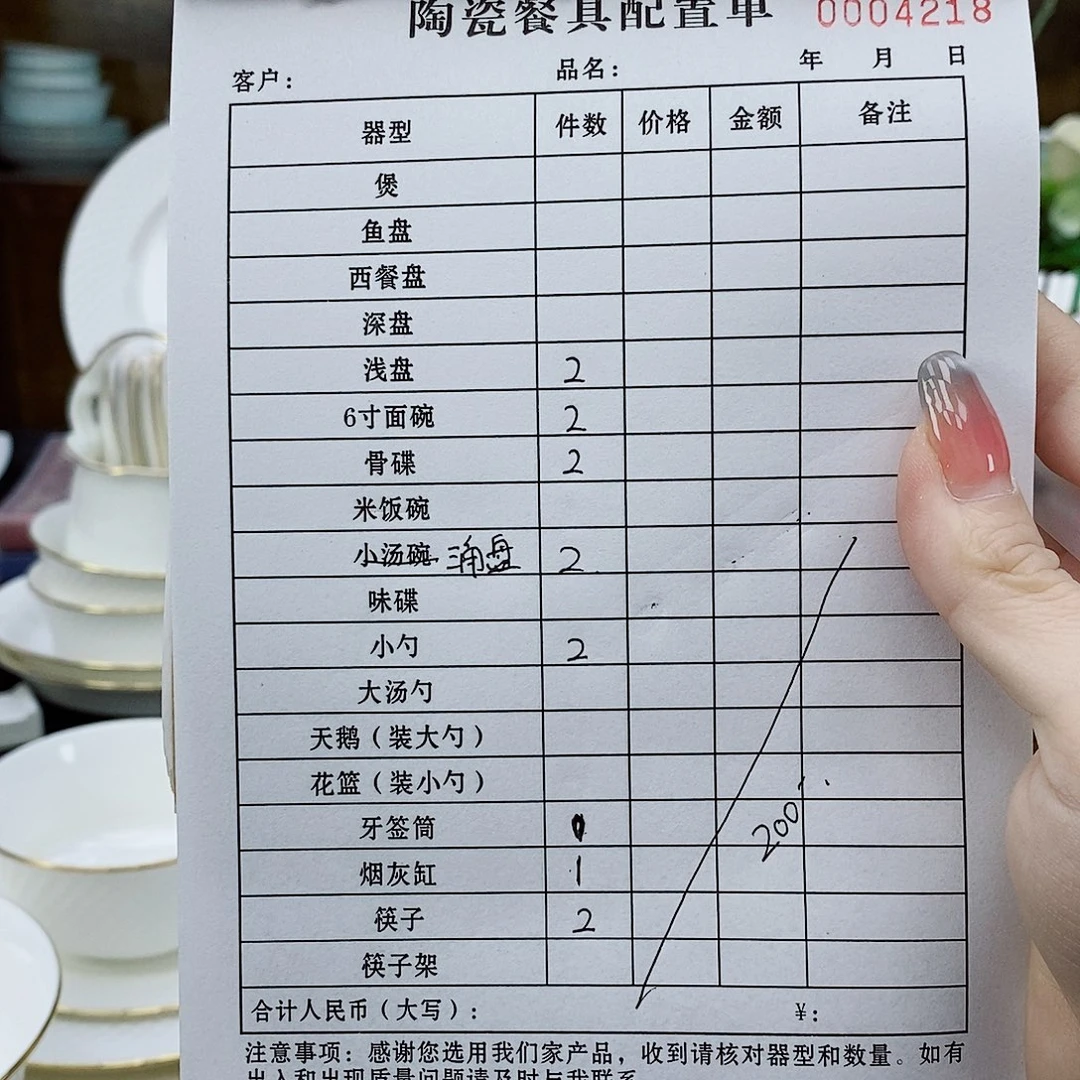 陶瓷餐具配置单 0004218
客户： 品名： 年 月 日
器型 件数 价格 金额 备注
煲
鱼盘
西餐盘
深盘
浅盘 2
6寸面碗 2
骨碟 2
米饭碗
小汤碗 涌盘 2
味碟
小勺 2
大汤勺
天鹅（装大勺）
花篮（装小勺）
牙签筒
烟灰缸 1
筷子 2
筷子架
200
合计人民币（大写）： ¥：
注意事项：感谢您选用我们家产品，收到请核对器型和数量。如有
出入和出现质量问题请及时与我联系